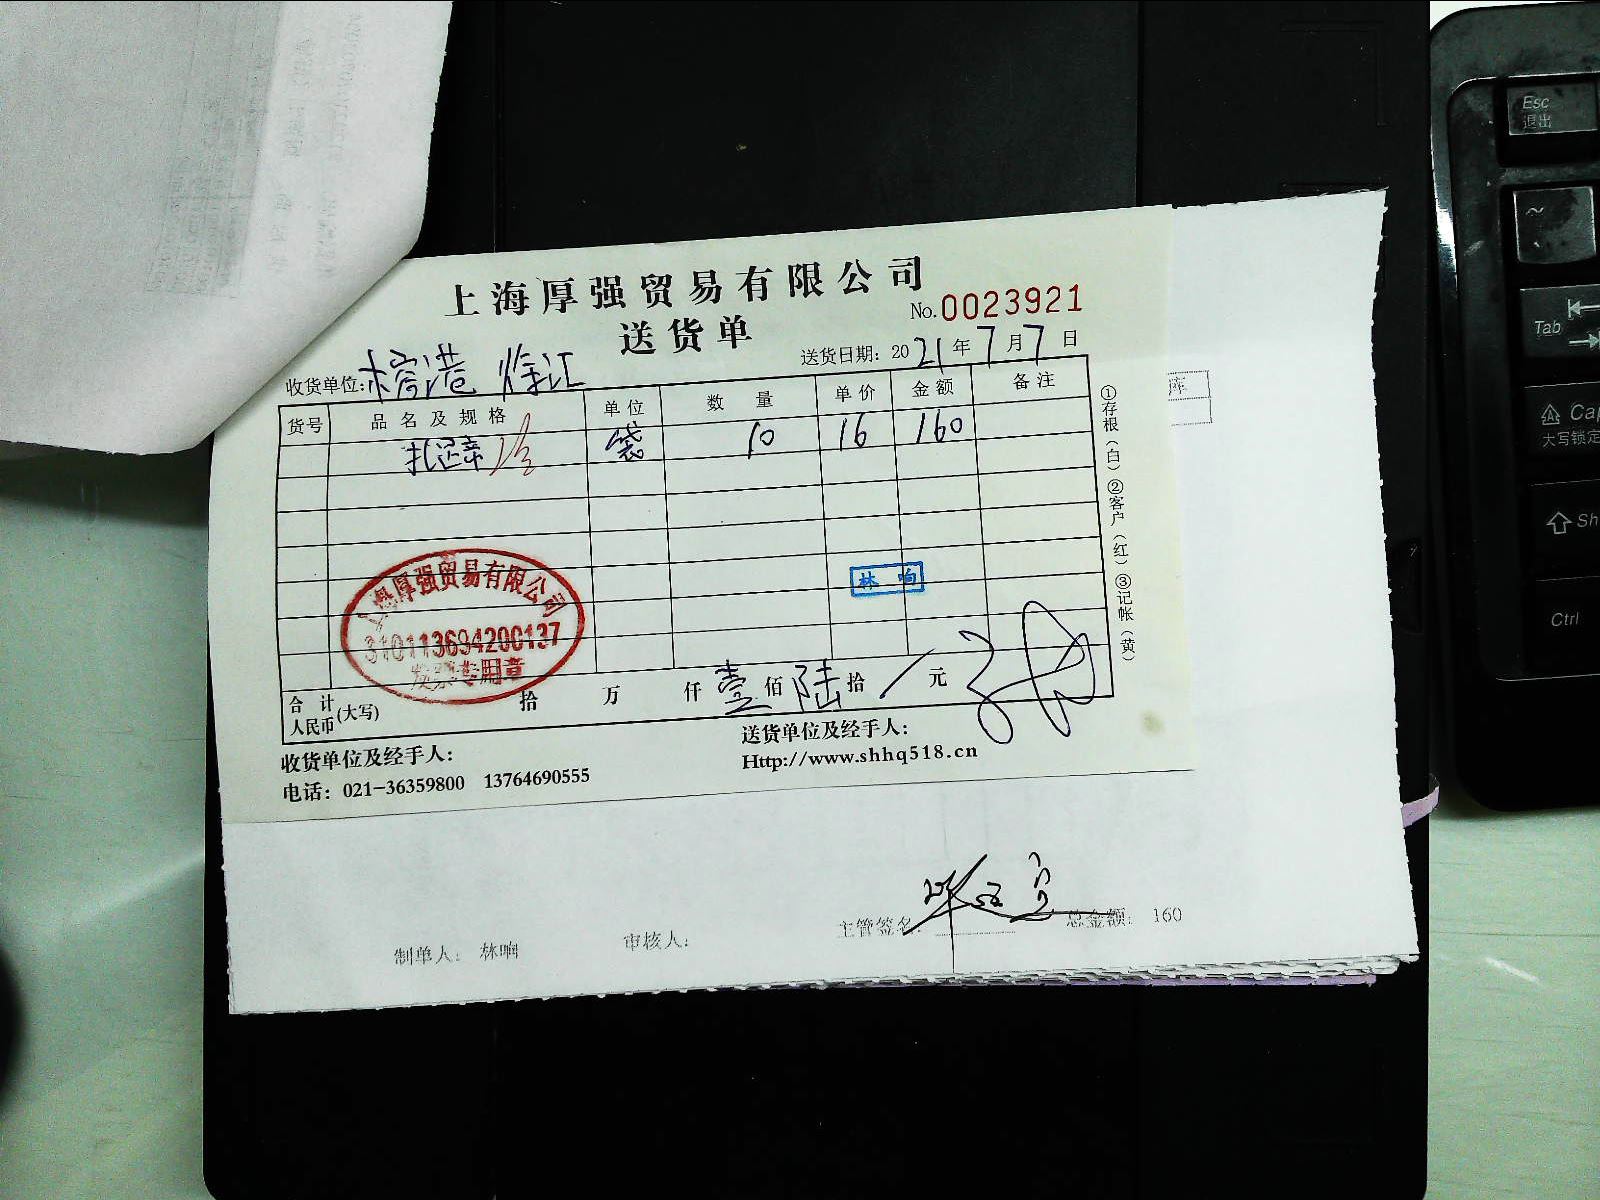 上海厚强贸易有限公司
No.0023921
送货单
送货日期：2021年7月7日
收货单位：
货号 品名及规格 单位 数量 单价 金额 备注
袋 10 16 160
①存根（白）②客户（红）③记帐（黄）
林响
上海厚强贸易有限公司
310113694200137
发票专用章
合计人民币(大写) 拾 万 仟 壹佰 陆拾 / 元
收货单位及经手人：
送货单位及经手人：
电话：021-36359800 13764690555
Http://www.shhq518.cn
制单人： 林响
审核人：
主管签名：
总金额： 160
库
Esc
退出
~
Tab
大写锁定
Ctrl